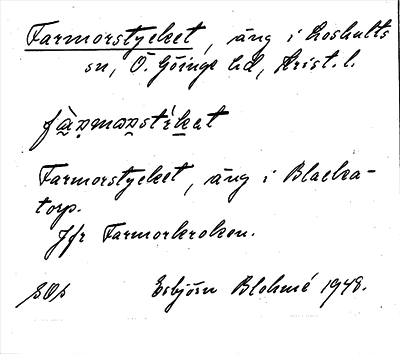 Farmorstycket, äng i Loshults
sn, Ö. Göinge hd, Krist. l.
fàrmorstýkət
Farmorstycket, äng i Blacka-
torp.
Jfr Farmorkroken.
SOs Esbjörn Blohmé 1948.